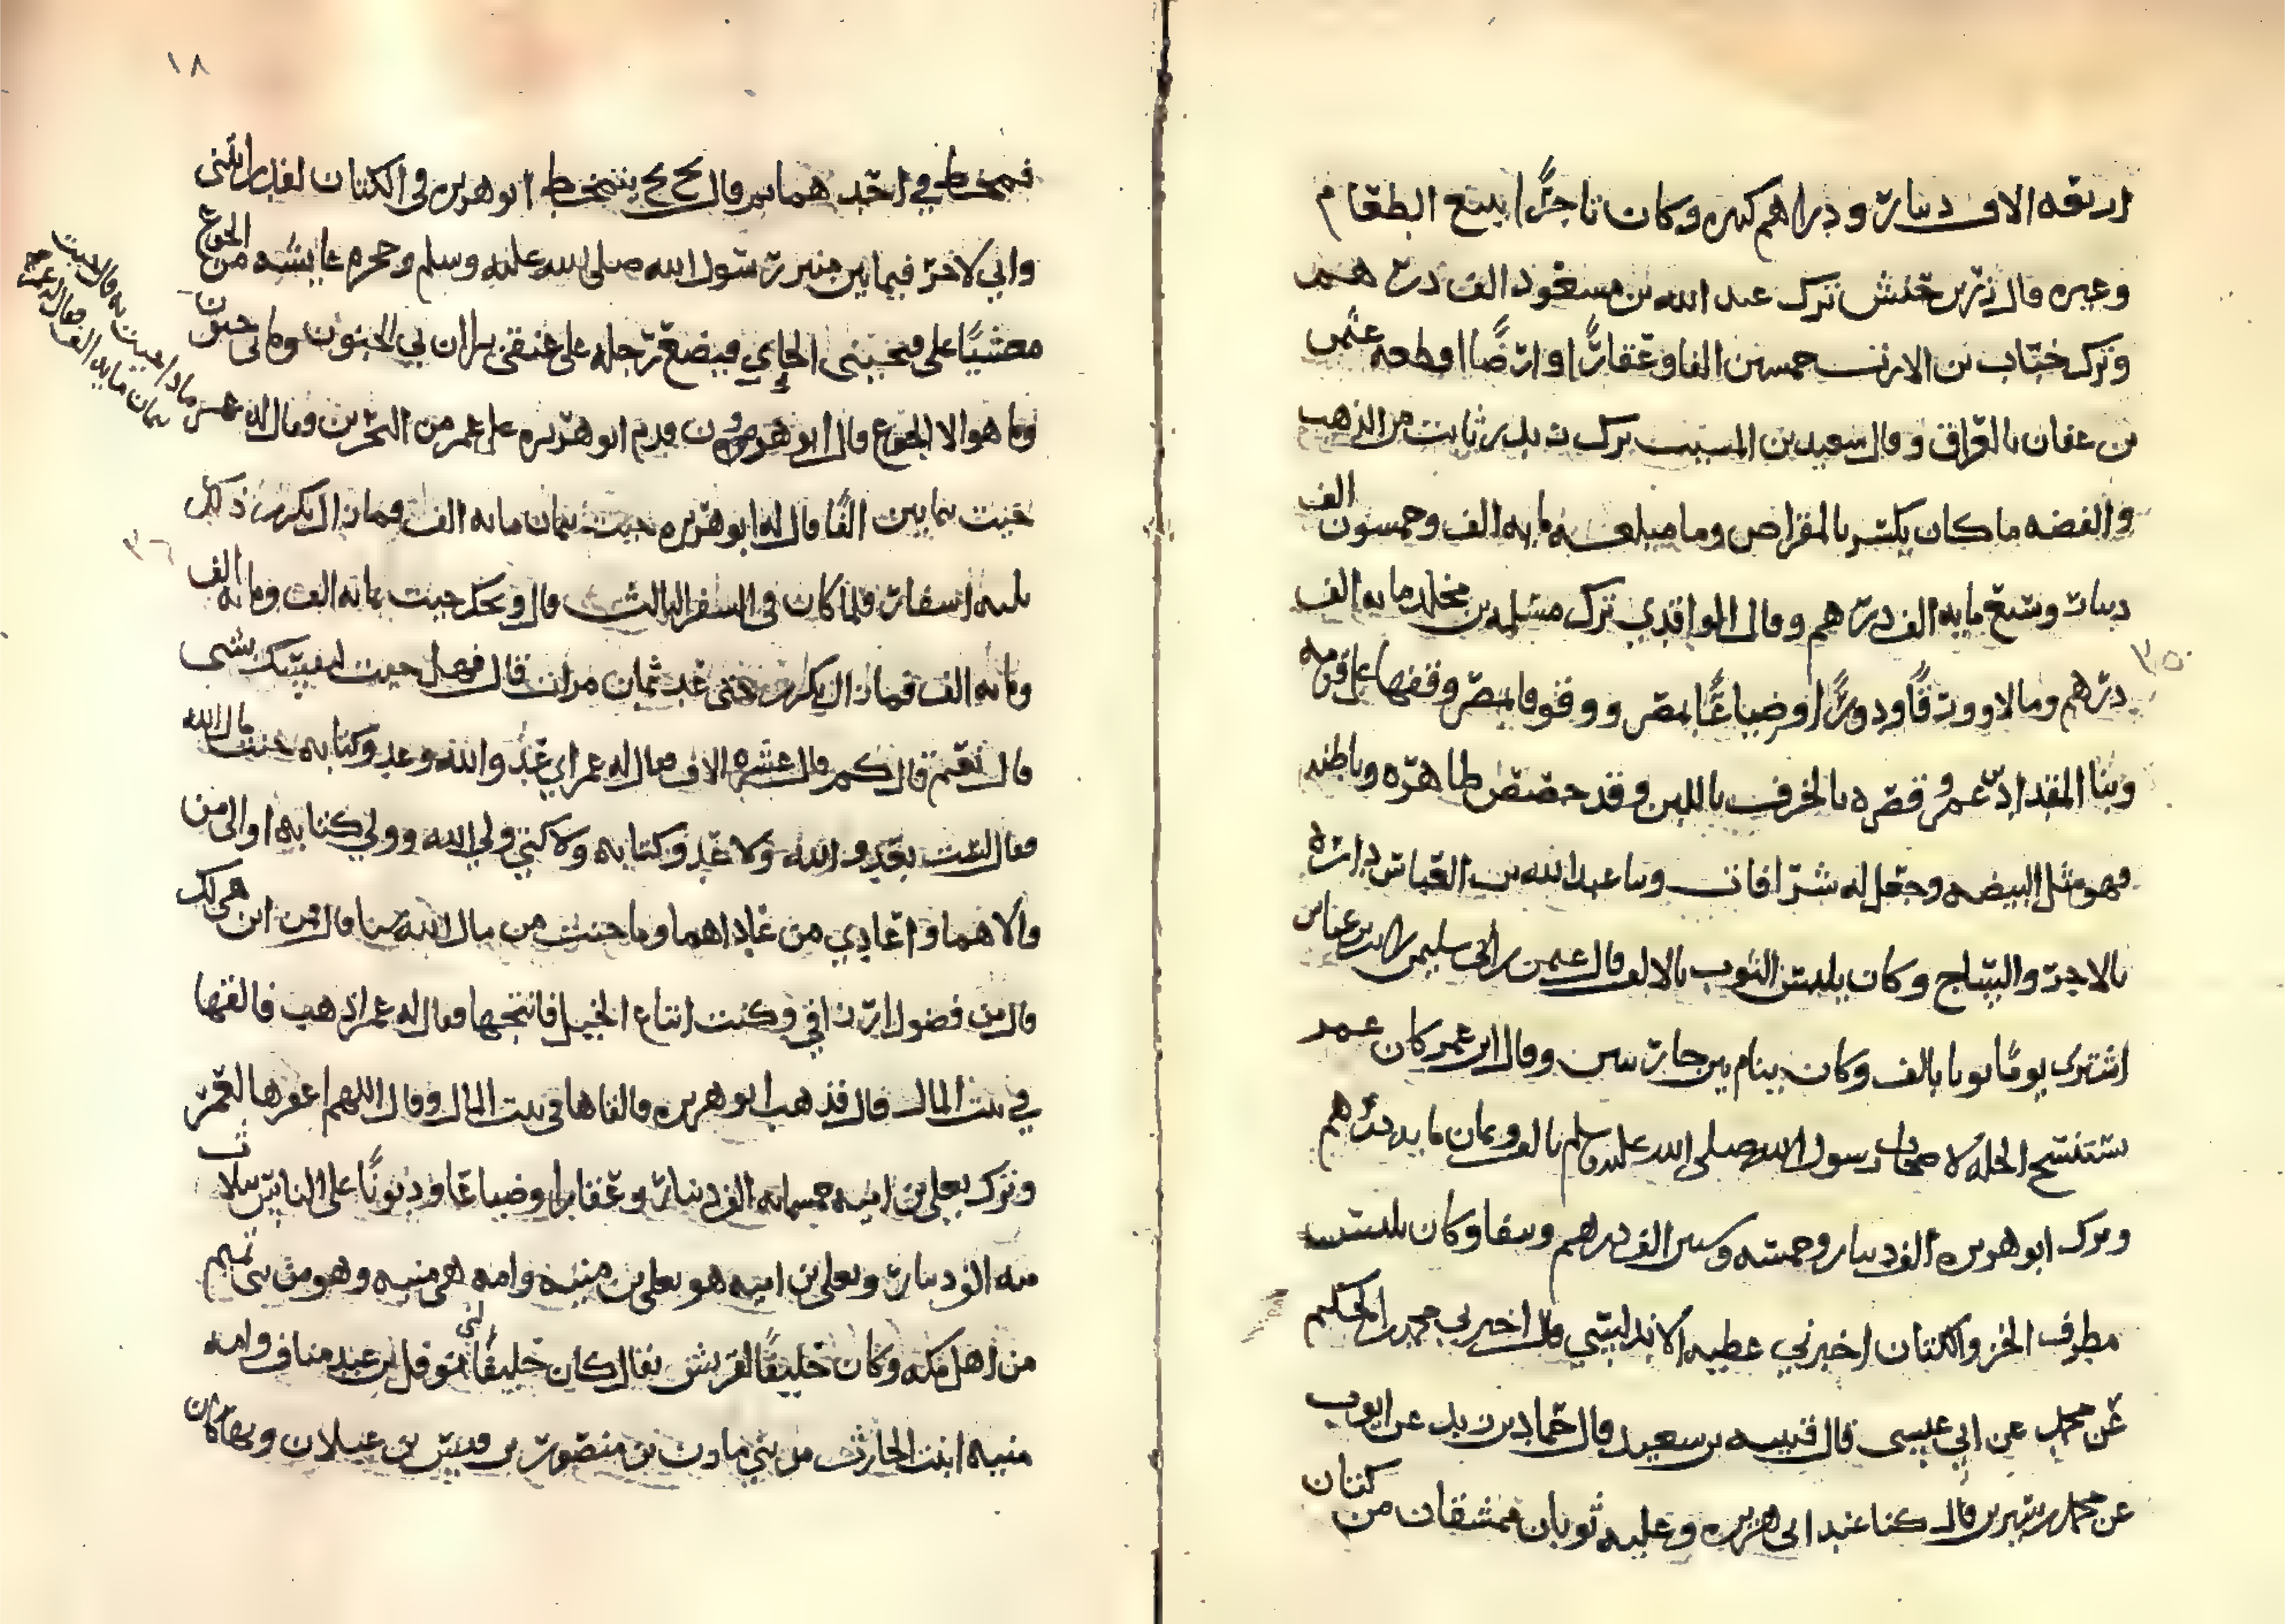 اربعه الاف دينار ودراهم كثيره وكان تاجرًا يبيع الطعام
وغيره قال زر بن حبش ترك عبد الله بن مسعود الف درهم
وترك خباب بن الارت خمسين الفا وعقارًا وارضًا اقطعه عثمن
بن عفان بالعراق وقال سعيد بن المسيب ترك زيد بن ثابت من الذهب
والفضه ما كان يكسر بالمقراص وما مبلغه مايه الف وخمسون الف
دينار وسبع مايه الف درهم وقال الواقدي ترك مسلمه بن مخلد مايه الف
درهم ومالا وورقًا ودورًا وضياعًا بمصر ووقوفا بمصر وقفها على قومه
وبنا المقداد بن عمرو قصره بالخرف باللبن وقد حصص ظاهره وباطنه
فهو مثل البيضه وجعل له شرافات وبنا عبد الله بن العباس داره
بالاجر والساج وكان يلبس الثوب بالالف قال عثمن بن ابي سليمن ابن عباس
اشترى يومًا ثوبا بالف وكان ينام بين جارتين وقال ابن عمر كان عمر
يستنسج الحله لاصحاب رسول الله صلى الله عليه وسلم بالف وثمان مايه درهم
وترك ابو هريره الف دينار وخمسه وستين الف درهم وسفا وكان يلبس
مطرف الخز والكتان اخبرني عطيه الاندلسي قال اخبرني حمد بن الحكيم
عن محمد عن ابي عيسى قال قتيبه بن سعيد قال حماد بن زيد عن ايوب
عن محمد بن سيرين قال كنا عند ابي هريره وعليه ثوبان ممشقان من كتان
٣٥
١٨
فمخط في احدهما ثم قال بح بح يتمخط ابو هريره في الكتان لقد رايتني
واني لاخر فيما بين منبر رسول الله صلى الله عليه وسلم وحجره عايشه من الجوع
مغشيًا علي فيجيني الجاي فيضع رجله على عنقي يرا ان بي الجنون وما بي جنون
وما هو الا الجوع قال ابو هرون قدم ابو هريره على عمر من البحرين وقال له عمر ماذا جيت به قال جيت
بثمان مايه الف فقال له عمر
جيت بثمانين الفًا قال له ابو هريره جيت بثمان مايه الف فما زال يكرر ذلك
٣٦
ثلثه اسفار فلما كان في السفر الثالث قال ويحك جيت بمايه الف ومايه الف
ومايه الف فما زال يكرر حتى عد ثمان مرات قال فهل جيت لنفسك بشى
قال نعم قال كم قال عشره الاف فقال له عمر اي عدو الله وعدو كتابه خنت مال الله
فقال لست بعدو الله ولا عدو كتابه ولاكني ولي الله وولي كتابه اوالي من
والاهما واعادي من عاداهما وما خنت من مال الله شيا قال فمن اين هي لك
قال من فضول ارزاقي وكنت ابتاع الخيل فانتجها فقال له عمر اذهب فالقها
في بيت المال قال فذهب ابو هريره فالقاها في بيت المال وقال اللهم اغفرها لعمر
وترك يعلى بن اميه خمسمايه الف دينار وعقارا وضياعًا وديونًا على الناس ثلاث
مئه الف دينار ويعلى بن اميه هو يعلى بن منيه وامه هى منيه وهو من بني تميم
من اهل مكه وكان حليفًا لقريش يقال كان حليفًا لبني نوفل بن عبد مناف وامه
منيه ابنت الحارث من بني مازن بن منصور بن قيس بن عيلان وبها كان